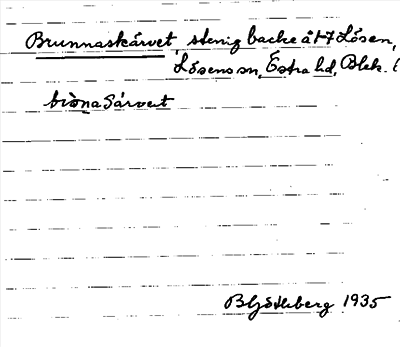 Brunnaskärvet, stenig backe å 1+7 Lösen,
Lösens sn, Östra hd, Blek.
B Götlberg 1935